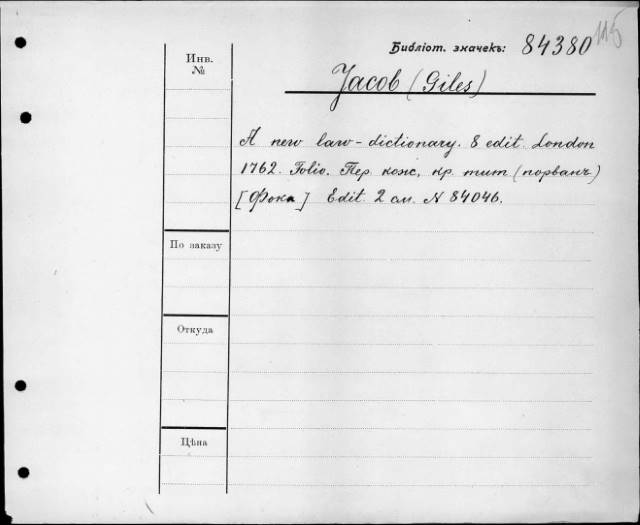 115
Библіот. значекъ: 84380
Инв.
№
Jacob (Giles)
A new law-dictionary. 8 edit. London
1762. Folio. Пер. кож, кр. тит (порванъ)
[Фока] Edit. 2 см. N 84046.
По заказу
Откуда
Цѣна